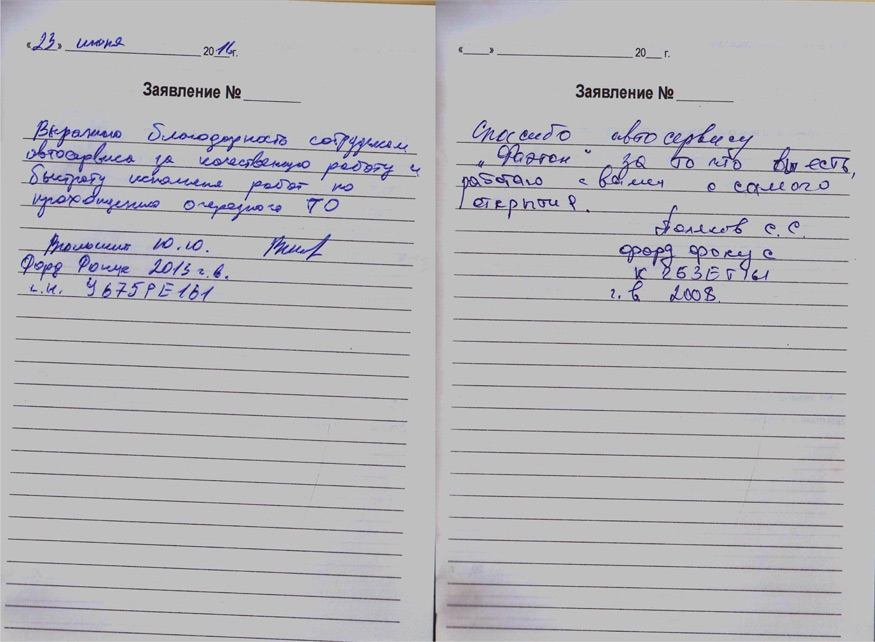 «23» июня 2016 г.
Заявление №
Выражаю благодарность сотрудникам
автосервиса за качественную работу и
быстроту исполнения работ по
прохождению очередного ТО
Ю.Ю.
Форд Фокус 2013 г.в.
г.н. У675РЕ161
« » 20 г.
Заявление №
Спасибо автосервису
„Фаэтон“ за то что вы есть,
работаю с вами с самого
открытия.
Поляков С.С.
форд фокус
г.в 2008.